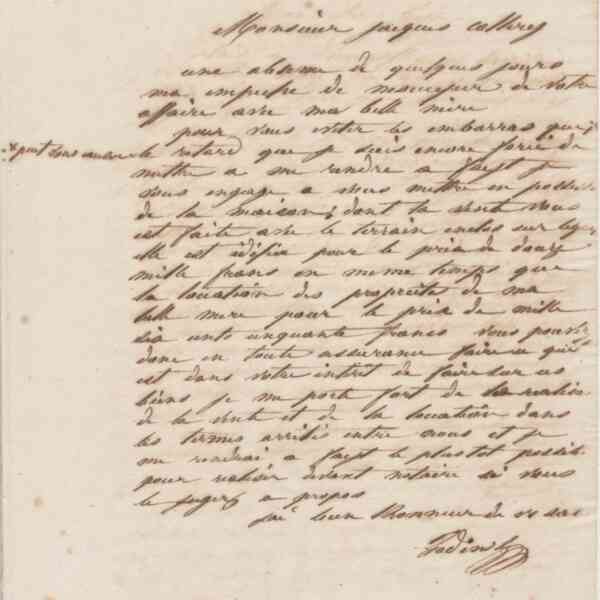 Monsieur jacques
une absence de quelques jours
ma empeche de m'occuper de votre
affaire avec ma belle mere
pour vous eviter les embarras que
x peut vous causer le retard que je suis encore forcé de
mettre a me rendre a je
vous engage a vous mettre en
de la maison, dont la vente vous
est faite avec le terrain enclos sur
elle est edifiée pour le prix de douze
mille francs en meme temps que
la location des propriétés de ma
belle mere pour le prix de mille
six cents cinquante francs vous pouvez
donc en toute assurance faire ce qui
est dans votre intérêt de faire sur ces
biens je me porte fort de la
de la vente et de la location dans
les termes arrêtés entre nous et je
me rendrai a le plus tot
pour realiser devant notaire si vous
le jugez a propos
jai bien Honneur de